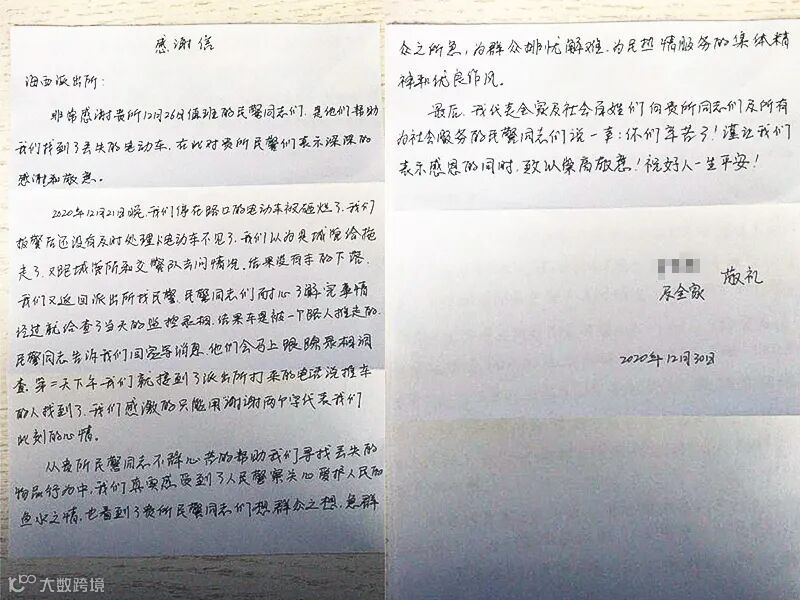 感谢信
海西派出所：
非常感谢贵所12月26日值班的民警同志们，是他们帮助
我们找到了丢失的电动车，在此对贵所民警们表示深深的
感谢和敬意。
2020年12月21日晚，我们停在路口的电动车被砸烂了，我们
报警后还没有及时处理，电动车不见了，我们以为是城管给拖
走了，又跑城管所和交警队去问情况，结果没有车的下落，
我们又返回派出所找民警，民警同志们耐心了解完事情
经过就给查了当天的监控录相，结果车是被一个路人推走的，
民警同志告诉我们回家等消息，他们会马上跟踪录相调
查，第二天下午我们就接到了派出所打来的电话说推车
的人找到了，我们感激的只能用谢谢两个字代表我们
此刻的心情。
从贵所民警同志不辞心劳的帮助我们寻找丢失的
物品行为中，我们真实感受到了人民警察关心爱护人民的
鱼水之情，也看到了贵所民警同志们想群众之想，急群
众之所急，为群众排忧解难，为民热情服务的集体精
神和优良作风。
最后，我代表全家及社会百姓们向贵所同志们及所有
为社会服务的民警同志们说一事：你们辛苦了！谨让我们
表示感恩的同时，致以崇高敬意！祝好人一生平安！
敬礼
及全家
2020年12月30日
大数跨境